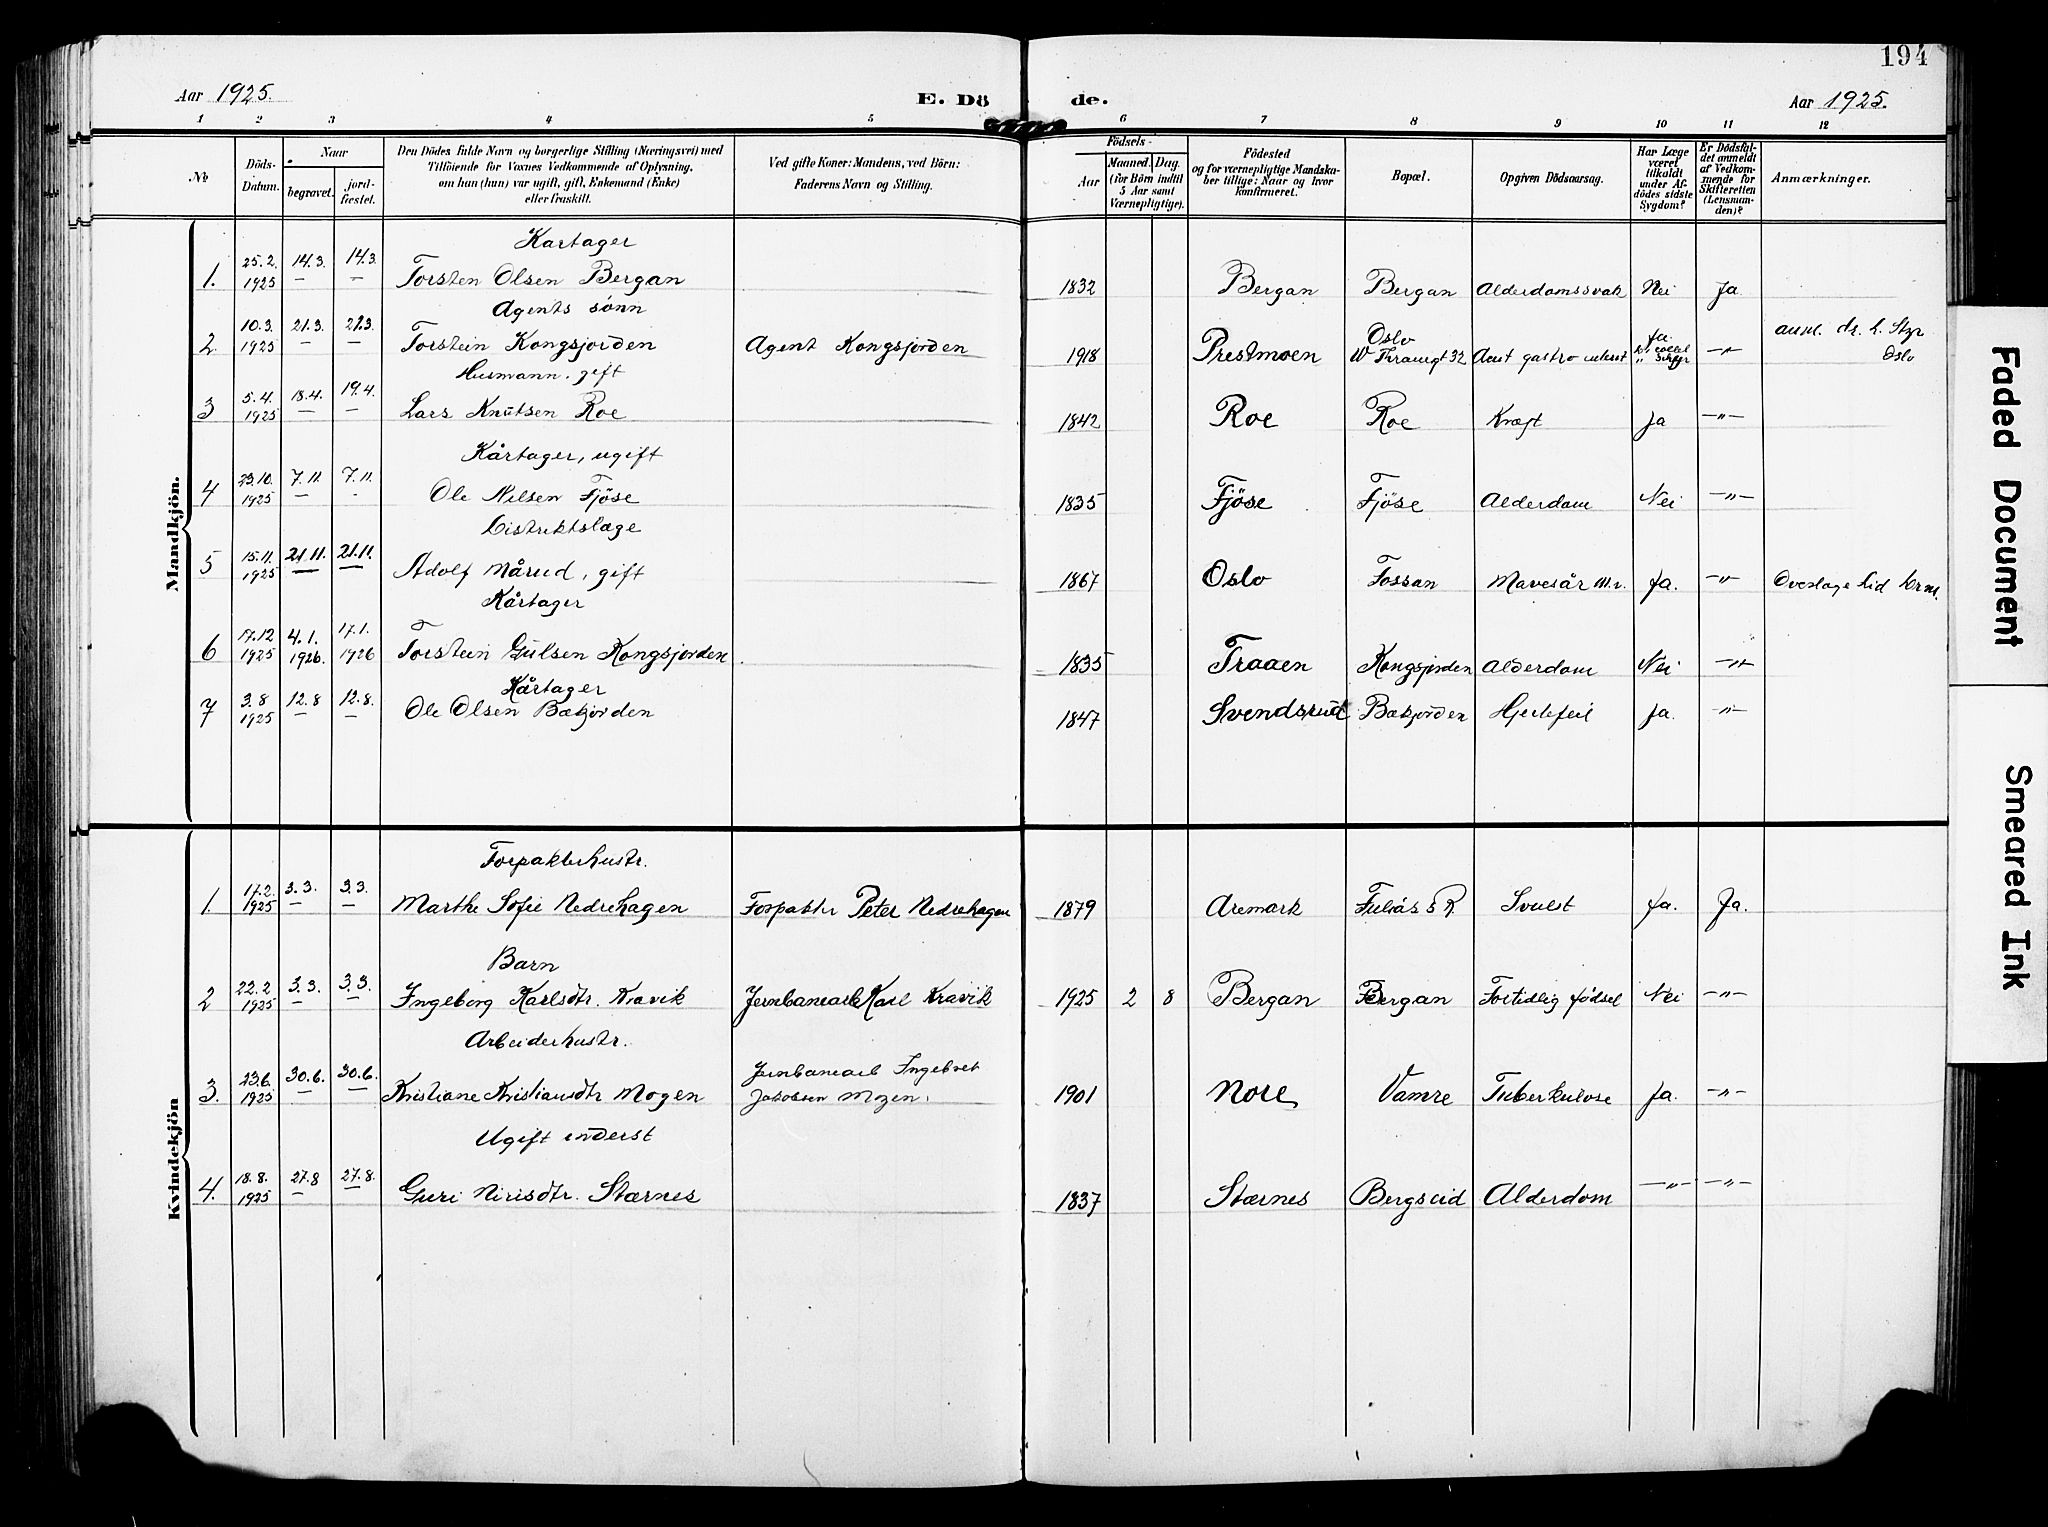 194
Aar 1925.
E. Dö de.
Aar 1925.
1 2 3 4 5 6 7 8 9 10 11 12
No
Döds-
Datum.
Naar
begravet.
jord-
fæstet.
Den Dödes fulde Navn og borgerlige Stilling (Næringsvei) med
Tilföiende for Voxnes Vedkommende af Oplysning,
om han (hun) var ugift, gift, Enkemand (Enke)
eller fraskilt.
Ved gifte Koner: Mandens, ved Börn:
Faderens Navn og Stilling.
Födsels-
Aar
Maaned. Dag.
(for Börn indtil
5 Aar samt
Værnepligtige).
Födested
og for værnepligtige Mandska-
ber tillige: Naar og hvor
konfirmeret.
Bopæl.
Opgiven Dödsaarsag.
Har Læge
været
tilkaldt
under Af-
dödes sidste
Sygdom?
Er Dödsfal-
det anmeldt
af Vedkom-
mende for
Skifteretten
(Lensman-
den)?
Anmærkninger.
Mandkjön.
Kartager
1. 25.2. 1925 14.3. — 14.3. — Torsten Olsen Bergan 1832 Bergan Bergan Alderdomssvak Nei Ja
Agents sönn
2. 10.3. 1925 21.3. — 21.3. — Torstein Kongsjorden Agent Kongsjorden 1918 Prestmoen Oslo 32 gastro Ja. —"— dr. Oslo
Husmann. gift
3 5.4. 1925 18.4. — 19.4. — Lars Knutsen Roe 1842 Roe Roe Kræft Ja —"—
Kårtager, ugift
4 23.10. 1925 7.11. — 7.11. - Ole Nilsen Fjöse 1835 Fjöse Fjöse Alderdom Nei —"—
Distriktslæge
5 15.11. 1925 21.11. — 21.11. — Adolf Mårud, gift 1867 Oslo Fossan Mavesår m.v. Ja. —"—
Kårtager
6 17.12 1925 4.1. 1926. 17.1. 1926 Torstein Gulsen Kongsjorden 1835 Traaen Kongsjorden Alderdom Nei —"—
Kårtager
7 3.8 1925 12.8 — 12.8. — Ole Olsen Bækjorden 1847 Svendsrud Bækjorden Hjertefeil Ja. —"—
Kvindekjön
Forpakterhustr.
1 17.2. 1925 3.3. — 3.3. — Marthe Sofie Nedrehagen Forpakter Peter Nedrehagen 1879 Aremark Svulst Ja. Ja.
Barn
2 22.2 1925 3.3. — 3.3. — Ingeborg Karlsdtr. Kravik Jernbanearb Karl Kravik 1925 2 8 Bergan Bergan Fortidlig födsel Nei —"—
Arbeiderhustr.
3. 23.6. 1925 30.6. — 30.6. — Kristiane Kristiansdtr Mogen Jernbanearb Ingebret
Jakobsen Mogen. 1901 Nore Vamre Tuberkulose Ja. —"—
Ugift inderst
4. 18.8. 1925 27.8 — 27.8. — Guri Nirisdtr. Stærnes 1837 Stærnes Alderdom —"— —"—
Faded Document
Smeared Ink